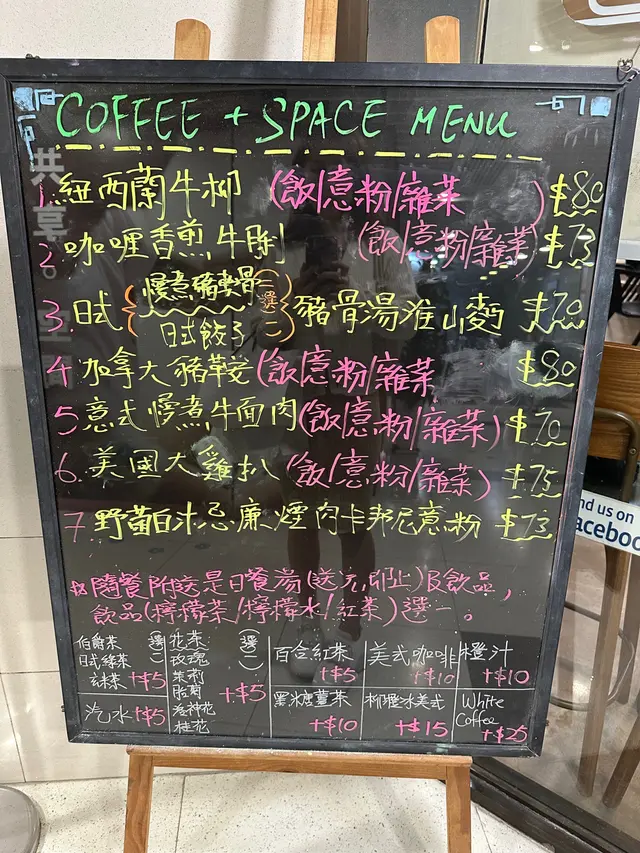 COFFEE + SPACE MENU
共享。空間
1. 紐西蘭牛柳 (飯/意粉/雜菜) $80
2. 咖喱香煎牛脷 (飯/意粉/雜菜) $73
3. 日式 (慢煮豬軟骨 日式餃子 二選一) 豬骨湯淮山麵 $70
4 加拿大豬鞍 (飯/意粉/雜菜 $80
5 意式慢煮牛面肉 (飯/意粉/雜菜) $70
6. 美國大雞扒 (飯/意粉/雜菜) $75
7. 野菌白汁忌廉煙肉卡邦尼意粉 $73
隨餐附送是日餐湯(送完即止)及飲品,
飲品(檸檬茶/檸檬水/紅茶)選一。
伯爵茶
日式綠茶
玄米茶
選一
+$5
花茶
玫瑰
茉莉
洛神花
桂花
選一
+$5
百合紅茶
+$5
美式咖啡
+$10
橙汁
+$10
汽水 +$5
黑糖薑茶
+$10
柳橙冰美式
+$15
White
Coffee
+$25
nd us on
acebook